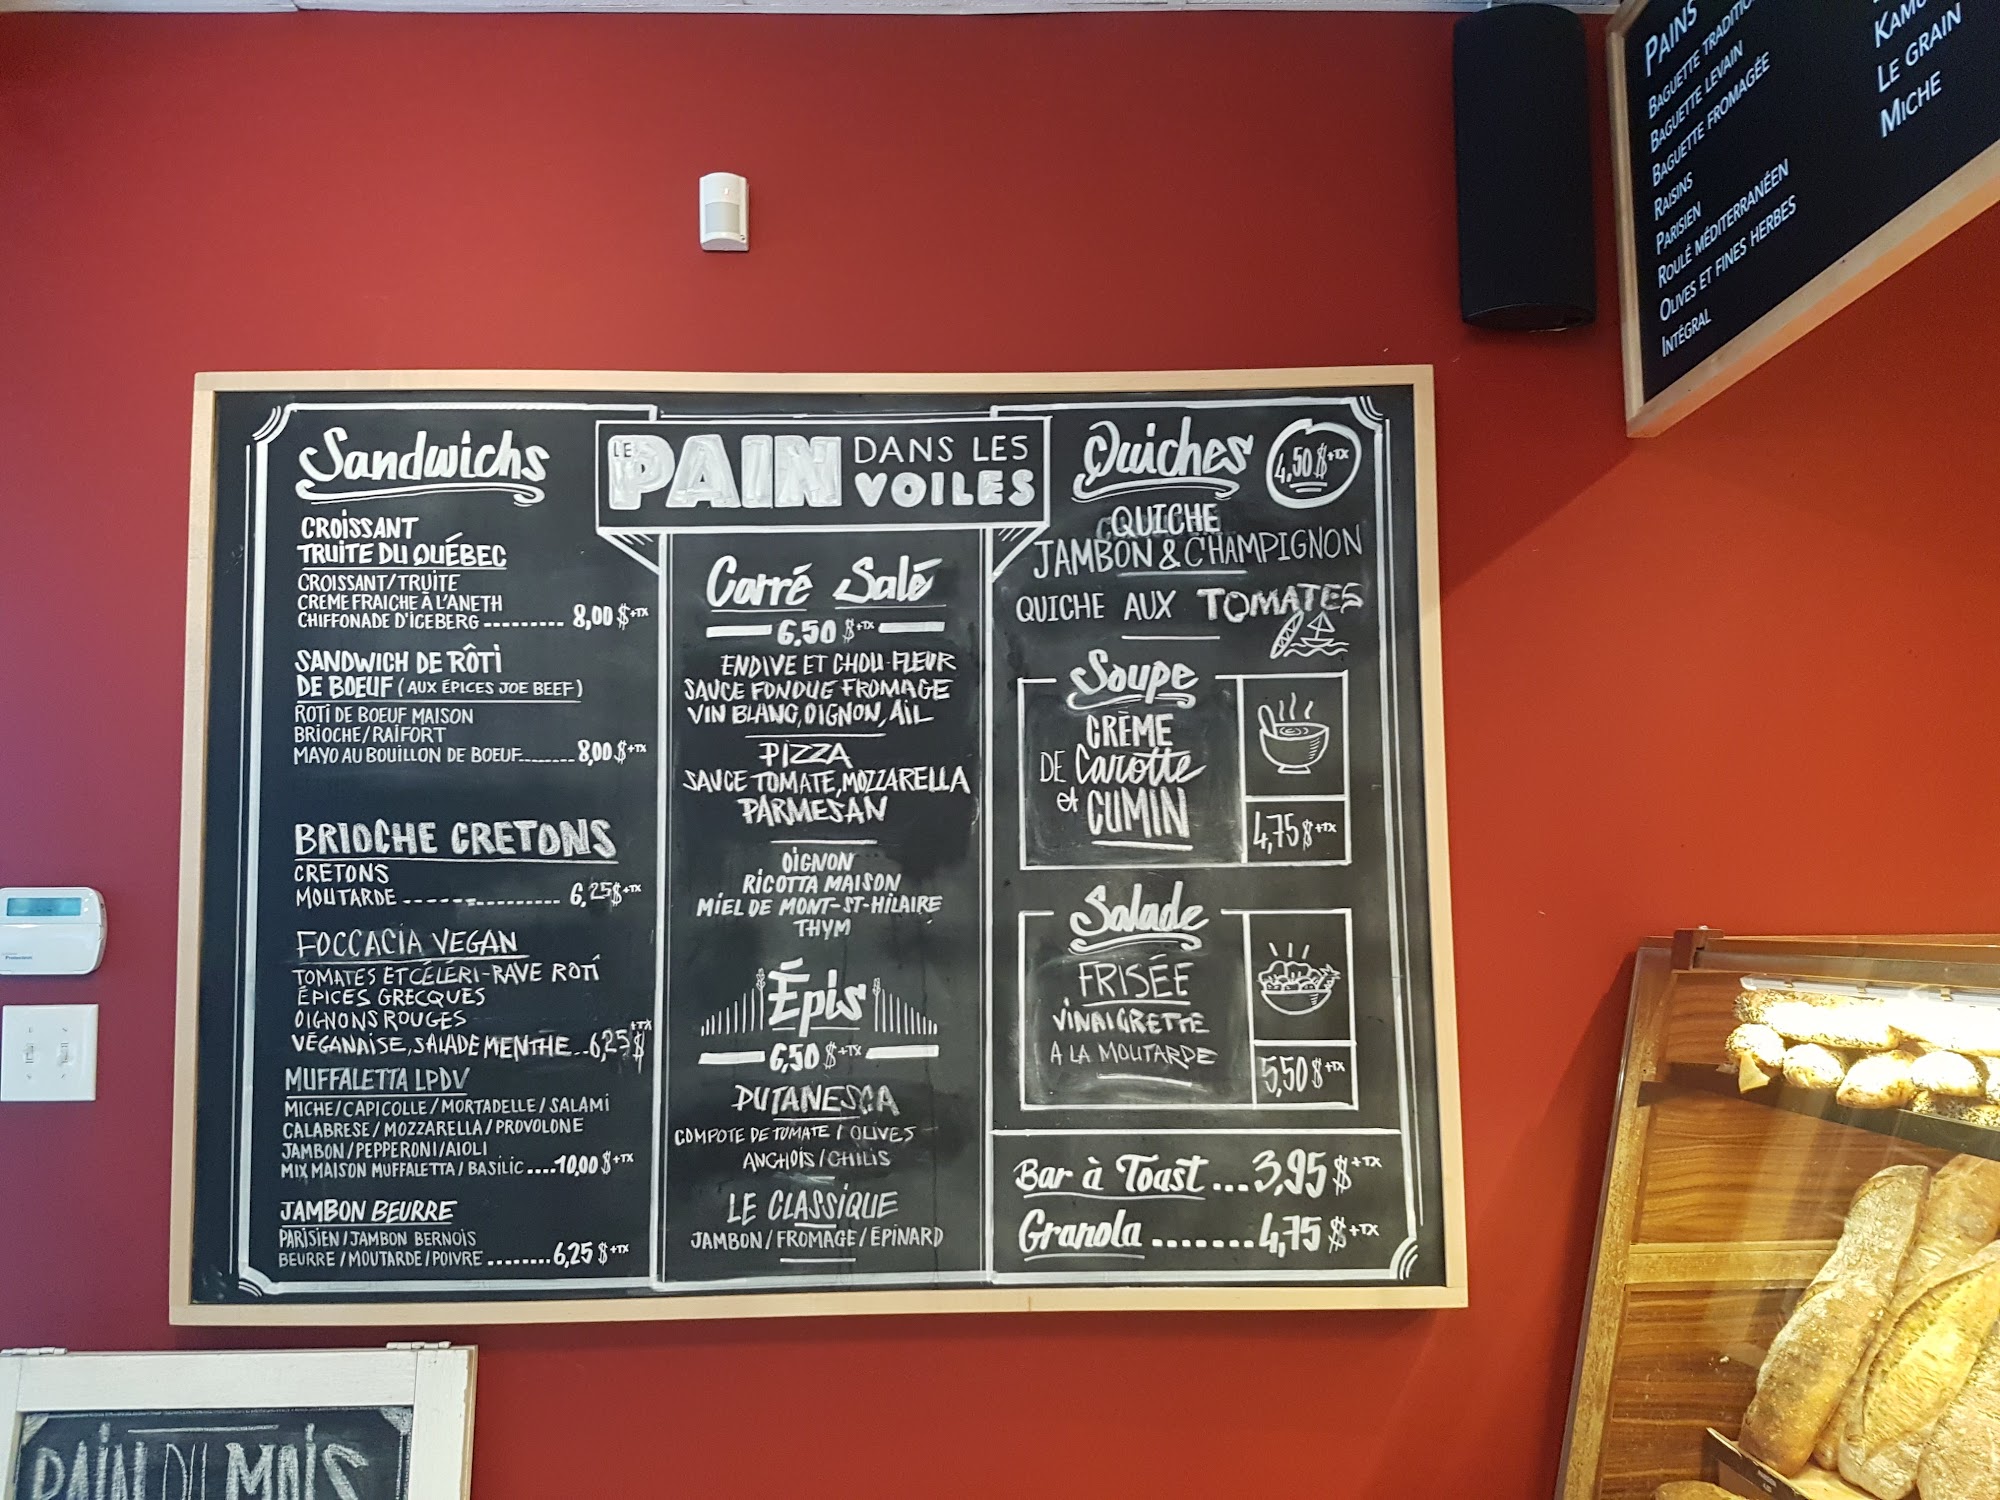 Sandwichs
CROISSANT
TRUITE DU QUÉBEC
CROISSANT/TRUITE
CREME FRAICHE À L'ANETH
CHIFFONADE D'ICEBERG --------- 8,00 $+TX
SANDWICH DE RÔTI
DE BOEUF (AUX ÉPICES JOE BEEF)
ROTI DE BOEUF MAISON
BRIOCHE/RAIFORT
MAYO AU BOUILLON DE BOEUF........ 8,00 $+TX
BRIOCHE CRETONS
CRETONS
MOUTARDE ----------------- 6,25$+TX
FOCCACIA VEGAN
TOMATES ET CÉLÉRI-RAVE ROTÎ
ÉPICES GRECQUES
OIGNONS ROUGES
VÉGANAISE, SALADE MENTHE..6,25$+TX
MUFFALETTA LPDV
MICHE/CAPICOLLE/MORTADELLE/SALAMI
CALABRESE/MOZZARELLA/PROVOLONE
JAMBON/PEPPERONI/AIOLI
MIX MAISON MUFFALETTA/BASILIC ....10,00 $+TX
JAMBON BEURRE
PARISIEN/JAMBON BERNOIS
BEURRE/MOUTARDE/POIVRE ........6,25 $+TX
LE PAIN DANS LES
VOILES
Carré Salé
6,50 $+TX
ENDIVE ET CHOU-FLEUR
SAUCE FONDUE FROMAGE
VIN BLANC, OIGNON, AIL
PIZZA
SAUCE TOMATE, MOZZARELLA
PARMESAN
OIGNON
RICOTTA MAISON
MIEL DE MONT-ST-HILAIRE
THYM
Épis
6,50 $+TX
PUTANESCA
COMPOTE DE TOMATE / OLIVES
ANCHOIS / CHILIS
LE CLASSIQUE
JAMBON/FROMAGE/ÉPINARD
Quiches 4,50 $+TX
QUICHE
JAMBON & CHAMPIGNON
QUICHE AUX TOMATES
Soupe
CRÈME
DE Carotte
et CUMIN
4,75 $+TX
Salade
FRISÉE
VINAIGRETTE
A LA MOUTARDE
5,50 $+TX
Bar à Toast ... 3,95 $+TX
Granola ........ 4,75 $+TX
PAINS
BAGUETTE
BAGUETTE LEVAIN
BAGUETTE FROMAGÉE
RAISINS
PARISIEN
ROULÉ MÉDITERRANÉEN
OLIVES ET FINES HERBES
INTÉGRAL
LE GRAIN
MICHE
PAIN DU MOIS